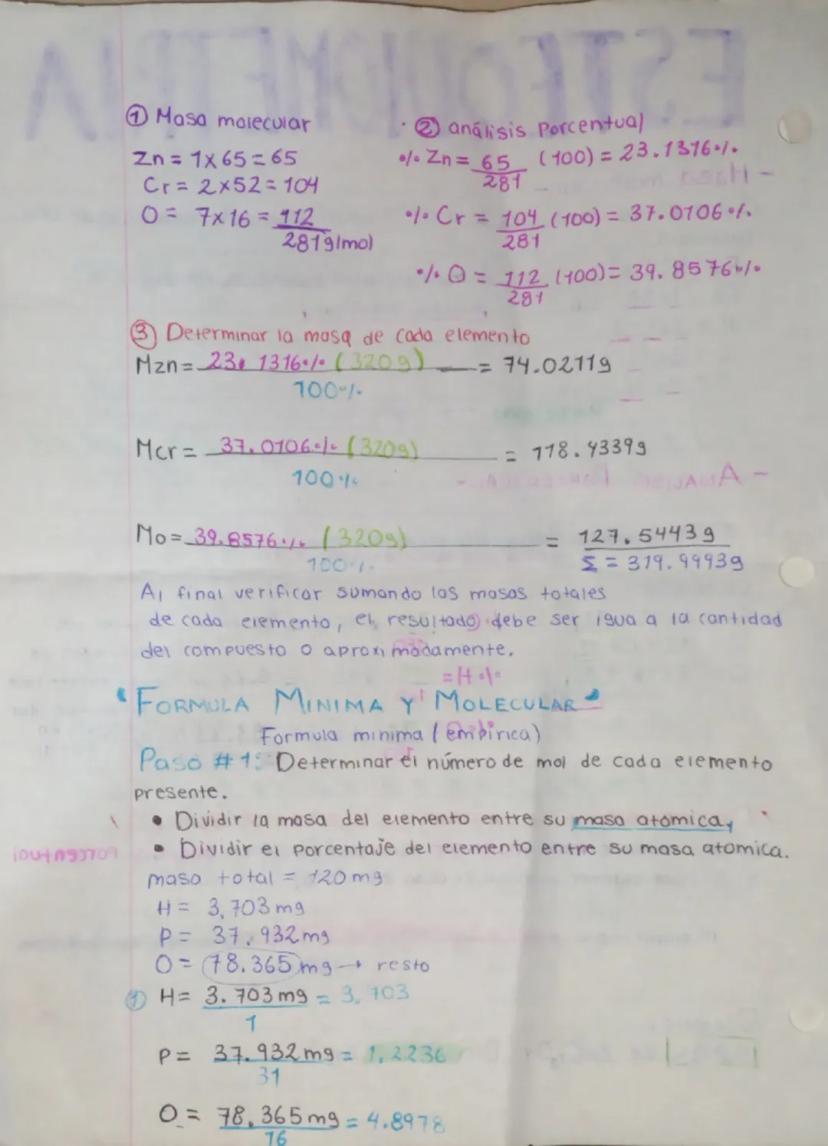 ① Masa molecular
Zn = 1x65 = 65
Cr = 2x52 = 104
O = 7x16 = 112
281g/mol
② análisis porcentual
% Zn = 65/281 (100) = 23.1316%
% Cr = 104/281 (100) = 37.0106%
% O = 112/281 (100) = 39.8576%
③ Determinar la masa de cada elemento
Mzn = 23.1316% (320g) / 100% = 74.0211g
Mcr = 37.0106% (320g) / 100% = 118.4339g
Mo = 39.8576% (320g) / 100% = 127.5443g
Σ = 319.9993g
Al final verificar sumando las masas totales
de cada elemento, el resultado debe ser igua a la cantidad
del compuesto o aproximadamente.
"FORMULA MINIMA Y MOLECULAR"
Formula minima (empirica)
Paso #1: Determinar el número de mol de cada elemento
presente.
• Dividir la masa del elemento entre su masa atomica,
• Dividir el porcentaje del elemento entre su masa atomica.
masa total = 120 mg
H = 3,703 mg
P = 37.932 mg
O = 78.365 mg → resto
① H = 3.703 mg / 1 = 3,703
P = 37.932 mg / 31 = 1,2236
O = 78,365 mg / 16 = 4.8978